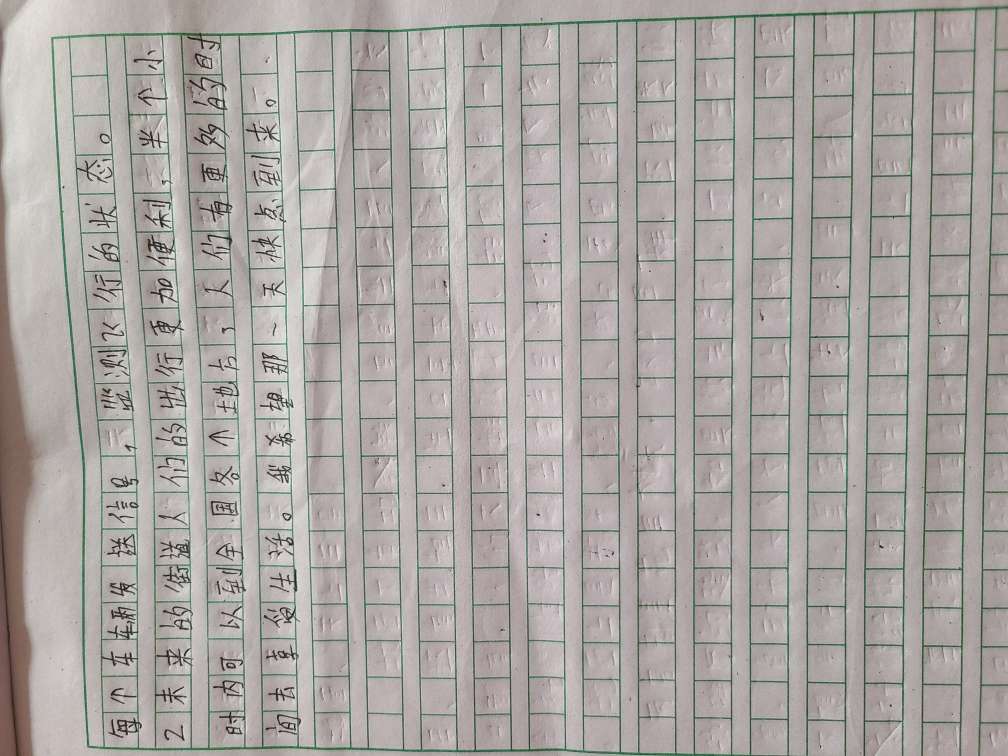 每个车辆发送信号,监测飞行的状态。
2未来的街道人们的出行更加便利,半个小
时内可以到全国各个地点,人们有更多的时
间去享受生活。我希望那一天快点到来。